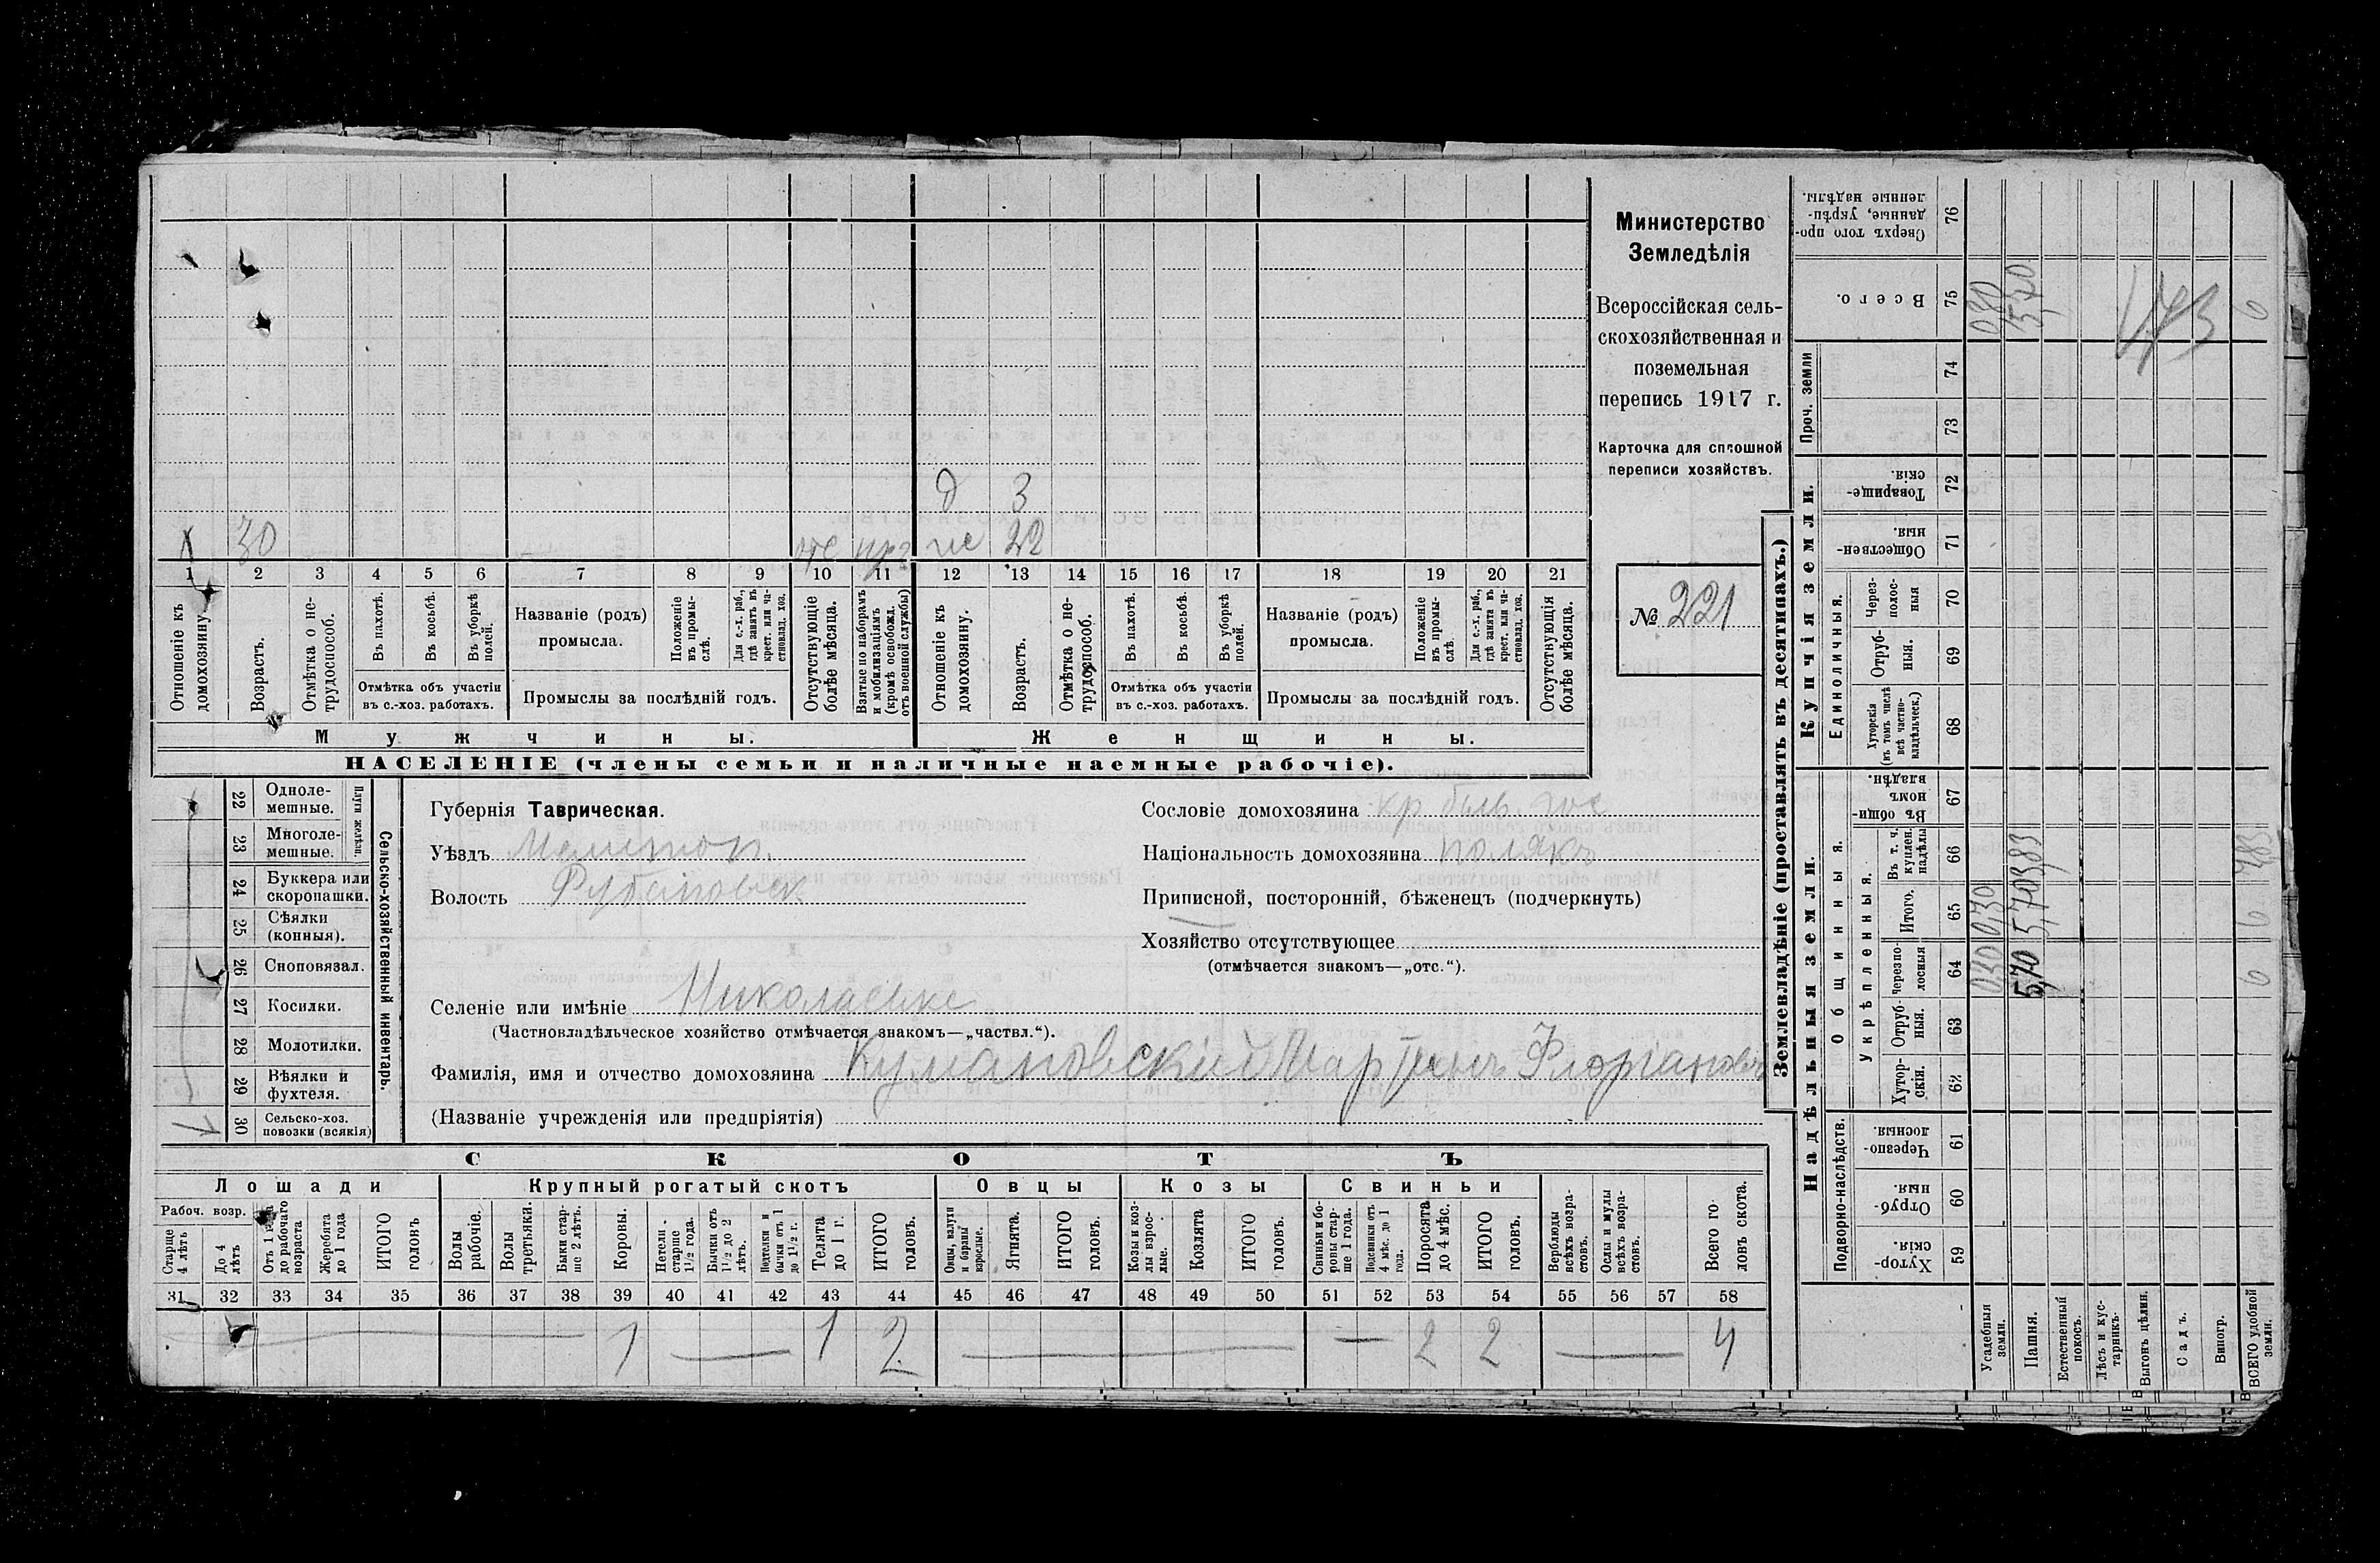 д 3
х 30 отс. не 22
1 2 3 4 5 6 7 8 9 10 11 12 13 14 15 16 17 18 19 20 21
Отношеніе къ домохозяину.
Возрастъ.
Отмѣтка о нетрудоспособ.
Въ пахотѣ.
Въ косьбѣ.
Въ уборкѣ полей.
Отмѣтка объ участіи
въ с.-хоз. работахъ.
Названіе (родъ)
промысла.
Положеніе въ промы-
слѣ.
Для с.-х. раб.,
гдѣ занятъ въ
крест. или ча-
стновлад. хоз.
Промыслы за послѣдній годъ.
Отсутствующіе
болѣе мѣсяца.
Взятые по наборамъ
и мобилизаціямъ
(кромѣ освобожд.
отъ военной службы)
Отношеніе къ
домохозяину.
Возрастъ.
Отмѣтка о не-
трудоспособ.
Въ пахотѣ.
Въ косьбѣ.
Въ уборкѣ
полей.
Отмѣтка объ участіи
въ с.-хоз. работахъ.
Названіе (родъ)
промысла.
Положеніе
въ промы-
слѣ.
Для с.-х. раб.,
гдѣ занята въ
крест. или ча-
стновлад. хоз.
Промыслы за послѣдній годъ.
Отсутствующія
болѣе мѣсяца.
Мужчины.
Женщины.
НАСЕЛЕНІЕ (члены семьи и наличные наемные рабочіе).
Министерство
Земледѣлія
Всероссійская сель-
скохозяйственная и
поземельная
перепись 1917 г.
Карточка для сплошной
переписи хозяйствъ.
№ 221
22 Одноле-
мешные.
23 Многоле-
мешные.
Плуги желѣзн.
24 Буккера или
скоропашки.
25 Сѣялки
(конныя).
26 Сноповязал.
27 Косилки.
28 Молотилки.
29 Вѣялки и
фухтеля.
30 Сельско-хоз.
повозки (всякія)
Сельско-хозяйственный инвентарь.
Губернія Таврическая.
Уѣздъ Мелитоп.
Волость Рубановск
Сословіе домохозяина кр. бывш. гос
Національность домохозяина полякъ
Приписной, посторонній, бѣженецъ (подчеркнуть)
Хозяйство отсутствующее
(отмѣчается знакомъ—„отс.“).
Селеніе или имѣніе Николаевке
(Частновладѣльческое хозяйство отмѣчается знакомъ—„частвл.“).
Фамилія, имя и отчество домохозяина Кумановскій Мартынъ Флоріановъ
(Названіе учрежденія или предпріятія)
СКОТЪ
Лошади Крупный рогатый скотъ Овцы Козы Свиньи
Рабоч. возр.
Старше
4 лѣтъ
До 4
лѣтъ
Отъ 1 года
до рабочаго
возраста
Жеребята
до 1 года
ИТОГО
головъ
Волы
рабочіе.
Волы
третьяки.
Быки стар-
ше 2 лѣтъ.
Коровы.
Нетели -
старше
1½ года.
Бычки отъ
1½ до 2
лѣтъ.
Подтелки и
бычки отъ 1
до 1½ г.
Телята
до 1 г.
ИТОГО
головъ.
Овцы, валухи
и бараны
взрослые.
Ягнята.
ИТОГО
головъ.
Козы и коз-
лы взрос-
лые.
Козлята
ИТОГО
головъ.
Свиньи и бо-
ровы стар-
ше 1 года.
Подсвинки отъ
4 мѣс. до 1
года.
Поросята
до 4 мѣс.
ИТОГО
головъ.
Верблюды
всѣхъ возра-
стовъ.
Ослы и мулы
всѣхъ возра-
стовъ.
Всего го-
ловъ скота.
31 32 33 34 35 36 37 38 39 40 41 42 43 44 45 46 47 48 49 50 51 52 53 54 55 56 57 58
1 — 1 2 — — 2 2 — 4
Землевладѣніе (проставлять въ десятинахъ.)
Надѣльныя земли.
Купчія земли.
Подворно-наслѣдств.
Общинныя.
Укрѣпленныя.
Единоличныя.
Проч. земли
Хутор-
скія. 59
Отруб-
ныя. 60
Черезпо-
лосныя. 61
Хутор-
скія. 62
Отруб-
ныя. 63
Черезпо-
лосныя 64
Итого. 65
Въ т. ч.
куплен.
надѣлы 66
Въ общин-
номъ
владѣн. 67
Хуторскія
(въ томъ числѣ
всѣ частно-
владѣльческ.) 68
Отруб-
ныя. 69
Через-
полос-
ныя 70
Обществен-
ныя. 71
Товарище-
скія. 72
73
74
Всего. 75
Сверхъ того про-
данные, укрѣп-
ленные надѣлы. 76
Усадебныя
земли.
0,30 0,30 0,30
Пашня.
5,70 5,70 3,83 5,70
Естественный
покосъ.
Лѣсъ и кус-
тарникъ.
Выгонъ цѣлин.
Садъ.
Виногр.
ВСЕГО удобной
земли.
6 6 3,83 6